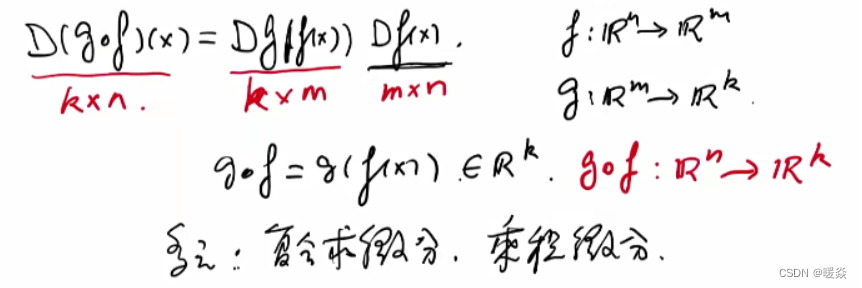 D(g∘f)(x) = Dg(f(x)) Df(x). f: ℝⁿ → ℝᵐ
k×n. k×m m×n g: ℝᵐ → ℝᵏ.
g∘f = g(f(x)) ∈ ℝᵏ. g∘f : ℝⁿ → ℝᵏ
: 复合求微分. 乘积微分.
CSDN @暖焱